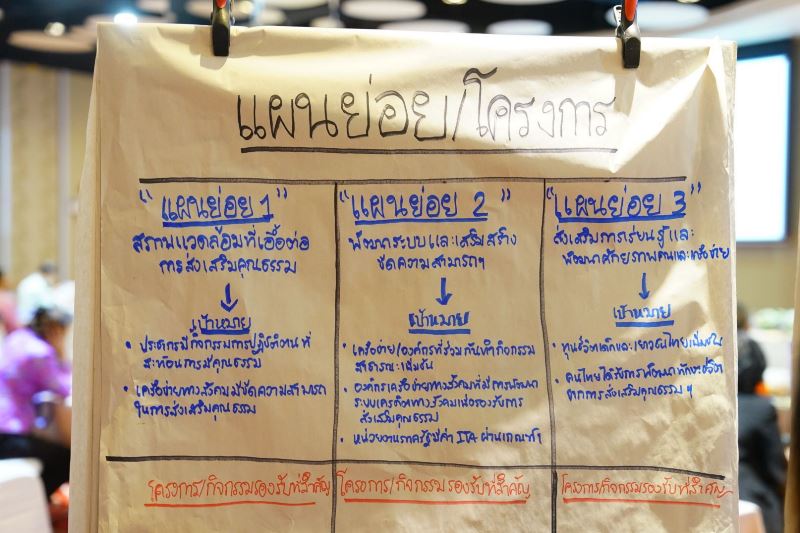 แผนย่อย/โครงการ
"แผนย่อย 1"
สภาพแวดล้อมที่เอื้อต่อ
การส่งเสริมคุณธรรม
เป้าหมาย
• ประชากรมีกิจกรรมการปฏิบัติตนที่
สะท้อนการมีคุณธรรม
• เครือข่ายทางสังคมมีขีดความสามารถ
ในการส่งเสริมคุณธรรม
"แผนย่อย 2"
พัฒนาระบบและเสริมสร้าง
ขีดความสามารถฯ
เป้าหมาย
• เครือข่าย/องค์กรที่ร่วมกันทำกิจกรรม
สาธารณะเพิ่มขึ้น
• องค์กรเครือข่ายทางสังคมที่มีการพัฒนา
ระบบเครดิตทางสังคมเพื่อรองรับการ
ส่งเสริมคุณธรรม
• หน่วยงานภาครัฐมีค่า ITA ผ่านเกณฑ์ฯ
"แผนย่อย 3"
ส่งเสริมการเรียนรู้และ
พัฒนาศักยภาพคนและเครือข่าย
เป้าหมาย
• ทุนชีวิตเด็กและเยาวชนไทยเพิ่มขึ้น
• คนไทยได้รับการพัฒนาทักษะชีวิต
จากการส่งเสริมคุณธรรม ฯ
โครงการ/กิจกรรมรองรับที่สำคัญ
โครงการ/กิจกรรมรองรับที่สำคัญ
โครงการ/กิจกรรมรองรับที่สำคัญ